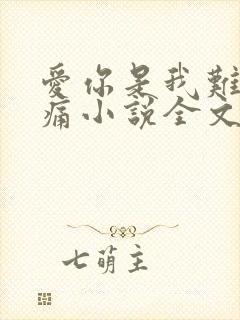 愛你是我難
痛小說全文
七萌主